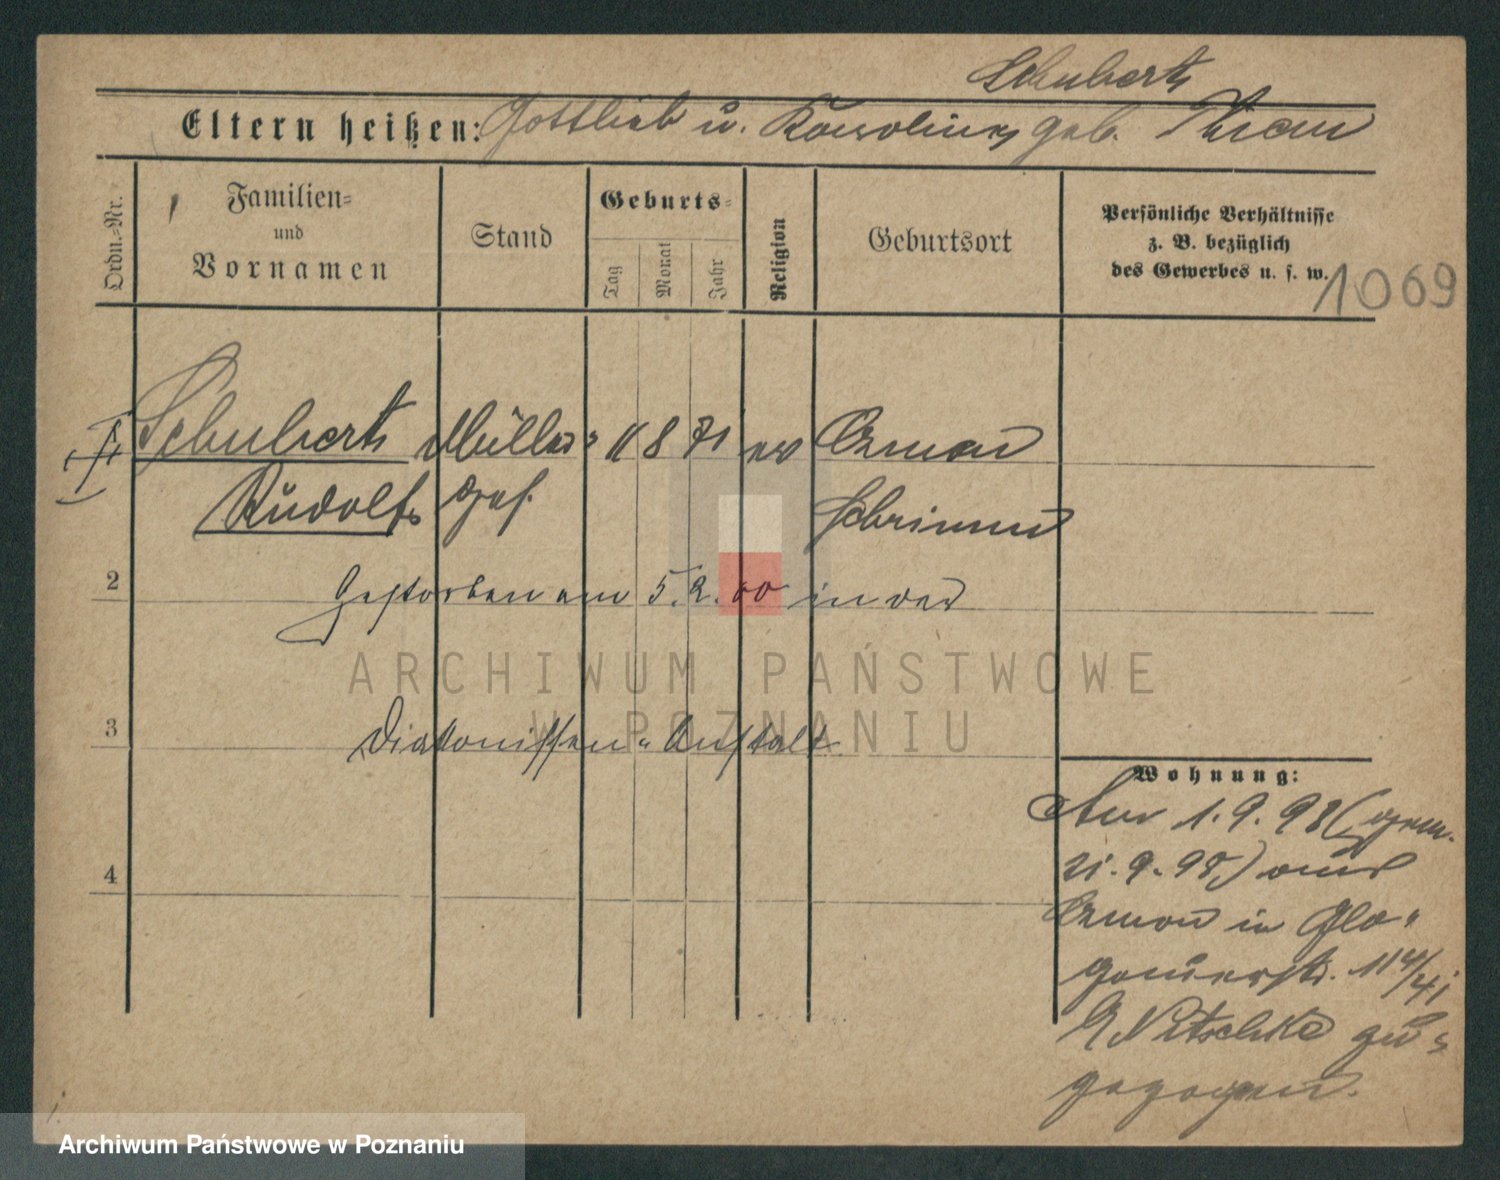 Schubert
Eltern heißen: Gottlieb u. Karoline geb.
Ordn.-Nr.
Familien- und Vornamen
Stand
Geburts-
Tag
Monat
Jahr
Religion
Geburtsort
Persönliche Verhältnisse
z. B. bezüglich
des Gewerbes u. s. w.
1069
Schubert Müller 11 8 71 ev
Rudolf ges. Schrimm
2
Gestorben am 5.2.00 in der
3
Diakonissen-Anstalt
4
Wohnung:
Am 1.9.98 (gem.
21.9.98) aus
in Glo-
gauerstr. 114/
Nitschke zu-
gezogen.
ARCHIWUM PAŃSTWOWE
W POZNANIU
Archiwum Państwowe w Poznaniu